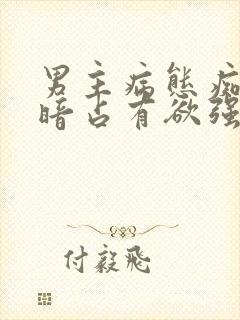 男主病態痴
暗占有欲强
付毅飛